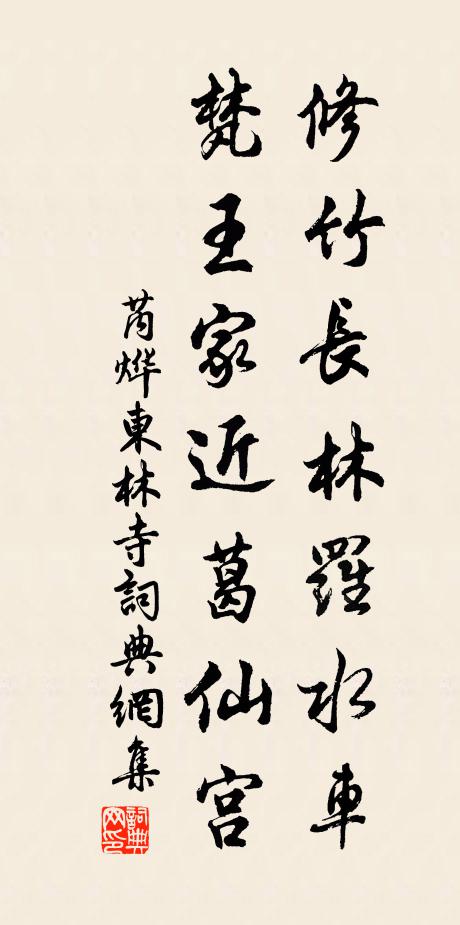 修竹長林羅水車
梵王家近葛仙宫
芮烨東林寺詞典網集
詞典网印